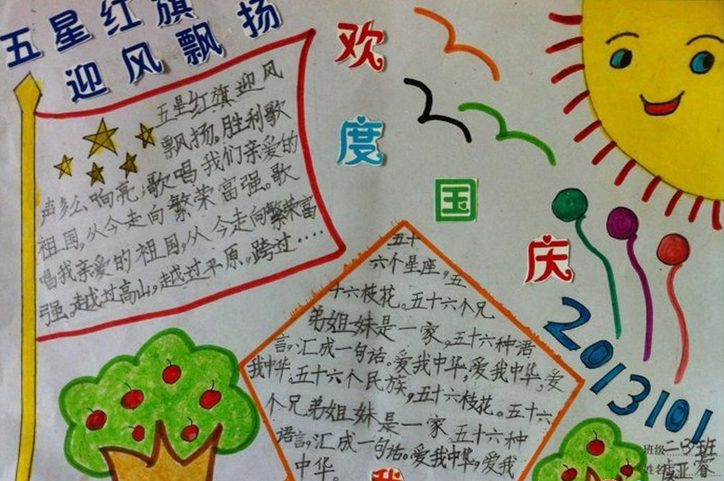 五星红旗
迎风飘扬
欢
度
国
庆
五星红旗迎风
飘扬。胜利歌
声多么响亮;歌唱我们亲爱的
祖国,从今走向繁荣富强。歌
唱我亲爱的祖国,从今走向繁荣富
强。越过高山,越过平原。跨过····
五十
六个星座,五
十六枝花。五十六个兄
弟姐妹是一家,五十六种语
言,汇成一句话。爱我中华,爱我中华,爱
我中华。五十六个民族,五十六枝花。五十六
个兄弟姐妹是一家五十六种
语言,汇成一句话。爱我中华,爱我
中华。
我
2013101
班级二.3班
姓名 亚睿